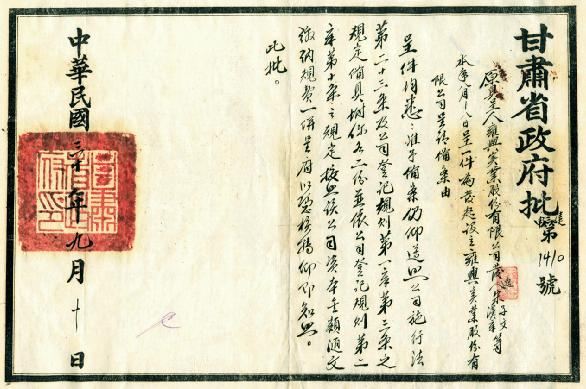 甘肅省政府批
建第1410號
原具呈人雍興實業股份有限公司發
本年八月十八日呈一件為發起設立雍興實業股份有
限公司呈請備案由
呈件均悉准予備案仍仰遵照公司施行法
第二十三条及公司登記規則第一章第三条之
規定備具附件各二份並依公司登記規則第二
章第十条之規定按照該公司資本total額
繳納規費一併呈府以憑核轉仰即知照。
此批。
中華民國三十年九月十日
甘肅省政府印